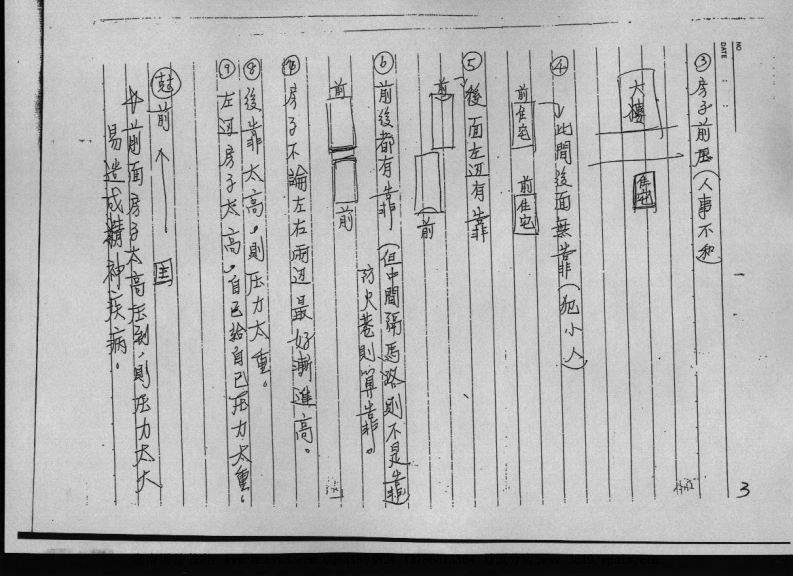 NO
DATE
③房子前壓(人事不和)
大樓
住宅
④此間後面無靠(犯小人)
前住宅
前住宅
⑤後面左边有靠
前
前
⑥前後都有靠(但中間隔馬路則不是靠)
防火巷則算靠。
前
前
⑦房子不論左右兩边最好漸進高。
⑧後靠太高,則压力太重。
⑨左边房子太高,自己給自己压力太重。
前
主
前面房子太高压到,則压力太大
易造成精神疾病。
3